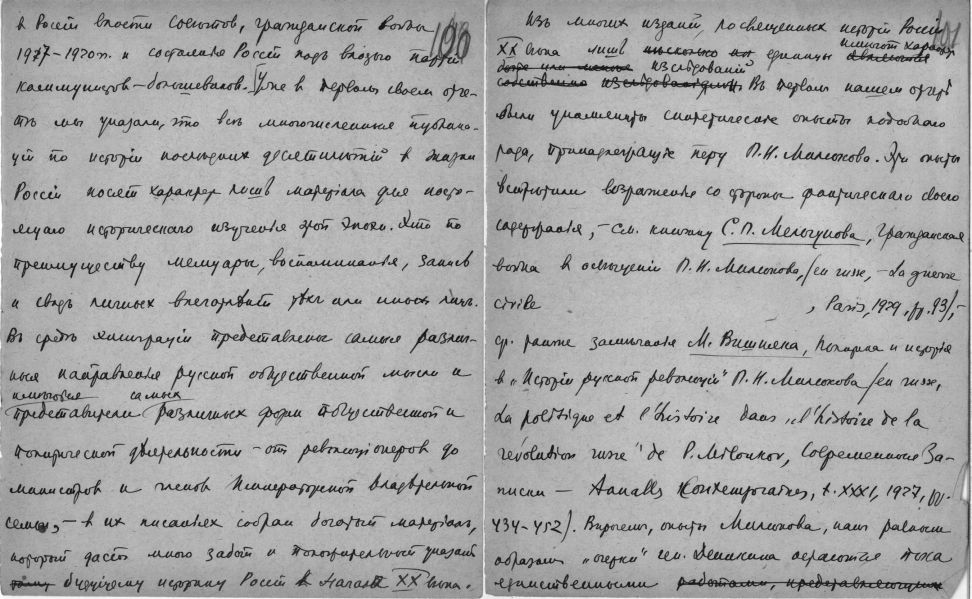 в Россіи власти Совѣтов, гражданской войны
100
1917–1920 гг. и состоянія Россіи под властью партіи
коммунистов–большевиков. Уже в первом своем отче-
тѣ мы указали, что вся многочисленная публика-
ція по исторіи послѣдних десятилѣтій в жизни
Россіи носит характер лишь матеріала для насто-
ящаго историческаго изученія этой эпохи. Это по
преимуществу мемуары, воспоминанія, записи
и свод личных впечатлѣній тѣх или иных лиц.
Въ средѣ эмиграціи представлены самыя различ-
ныя направленія русской общественной мысли и
имѣются самых
представители различных форм общественной и
политической дѣятельности – от революціонеров до
министров и членов Императорской Владѣтельной
семьи, – в их писаніях собран богатый матеріал,
который даст много забот и положительных указаній
будущему историку Россіи в началѣ XX вѣка.
Из многих изданій, посвященных исторіи Россіи
101
XX вѣка лишь нѣсколько единицы имѣют характер
болѣе или менѣе изслѣдованій
собственно Въ первом нашем отчетѣ
были упомянуты синтетическіе опыты подобнаго
рода, принадлежащіе перу П. Н. Милюкова. Эти опыты
встрѣтили возраженія со стороны фактическаго своего
содержанія, – см. книжку С. П. Мельгунова, Гражданская
война в освѣщеніи П. Н. Милюкова, /en russe, – La guerre
civile , Paris, 1929, pp. 93/, –
ср. ранѣе замѣчанія М. Вишняка, Политика и исторія
в „Исторіи русской революціи" П. Н. Милюкова /en russe,
La politique et l'histoire dans „l'histoire de la
révolution russe" de P. Milioukov, Современныя За-
писки – Annales Contemporaines, t. XXXI, 1927, pp.
434–452/. Впрочем, опыты Милюкова, как равным
образом „очерки" ген. Деникина остаются пока
единственными работами, представляющими